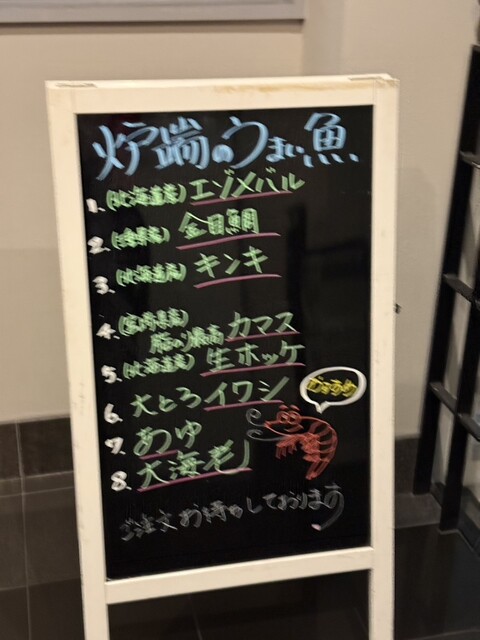 炉端のうまい魚
1. (北海道産) エゾメバル
2. 金目鯛
3. (北海道産) キンキ
4. (宮崎県産) 脂のり最高 カマス
5. (北海道産) 生ホッケ
6. 大とろイワシ
7. あゆ
8. 大海老
おすすめ
ご注文お待ちしております